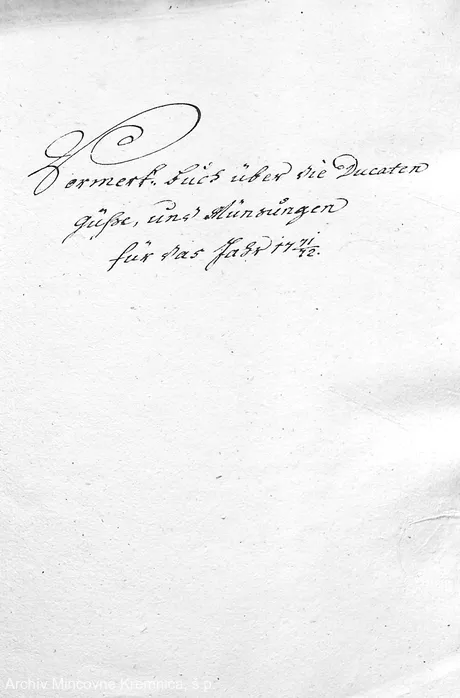 Vormerk: buch über die Ducaten
güße, und Münzungen
für das Jahr 17 71/72.
Archív Mincovne Kremnica, š.p.